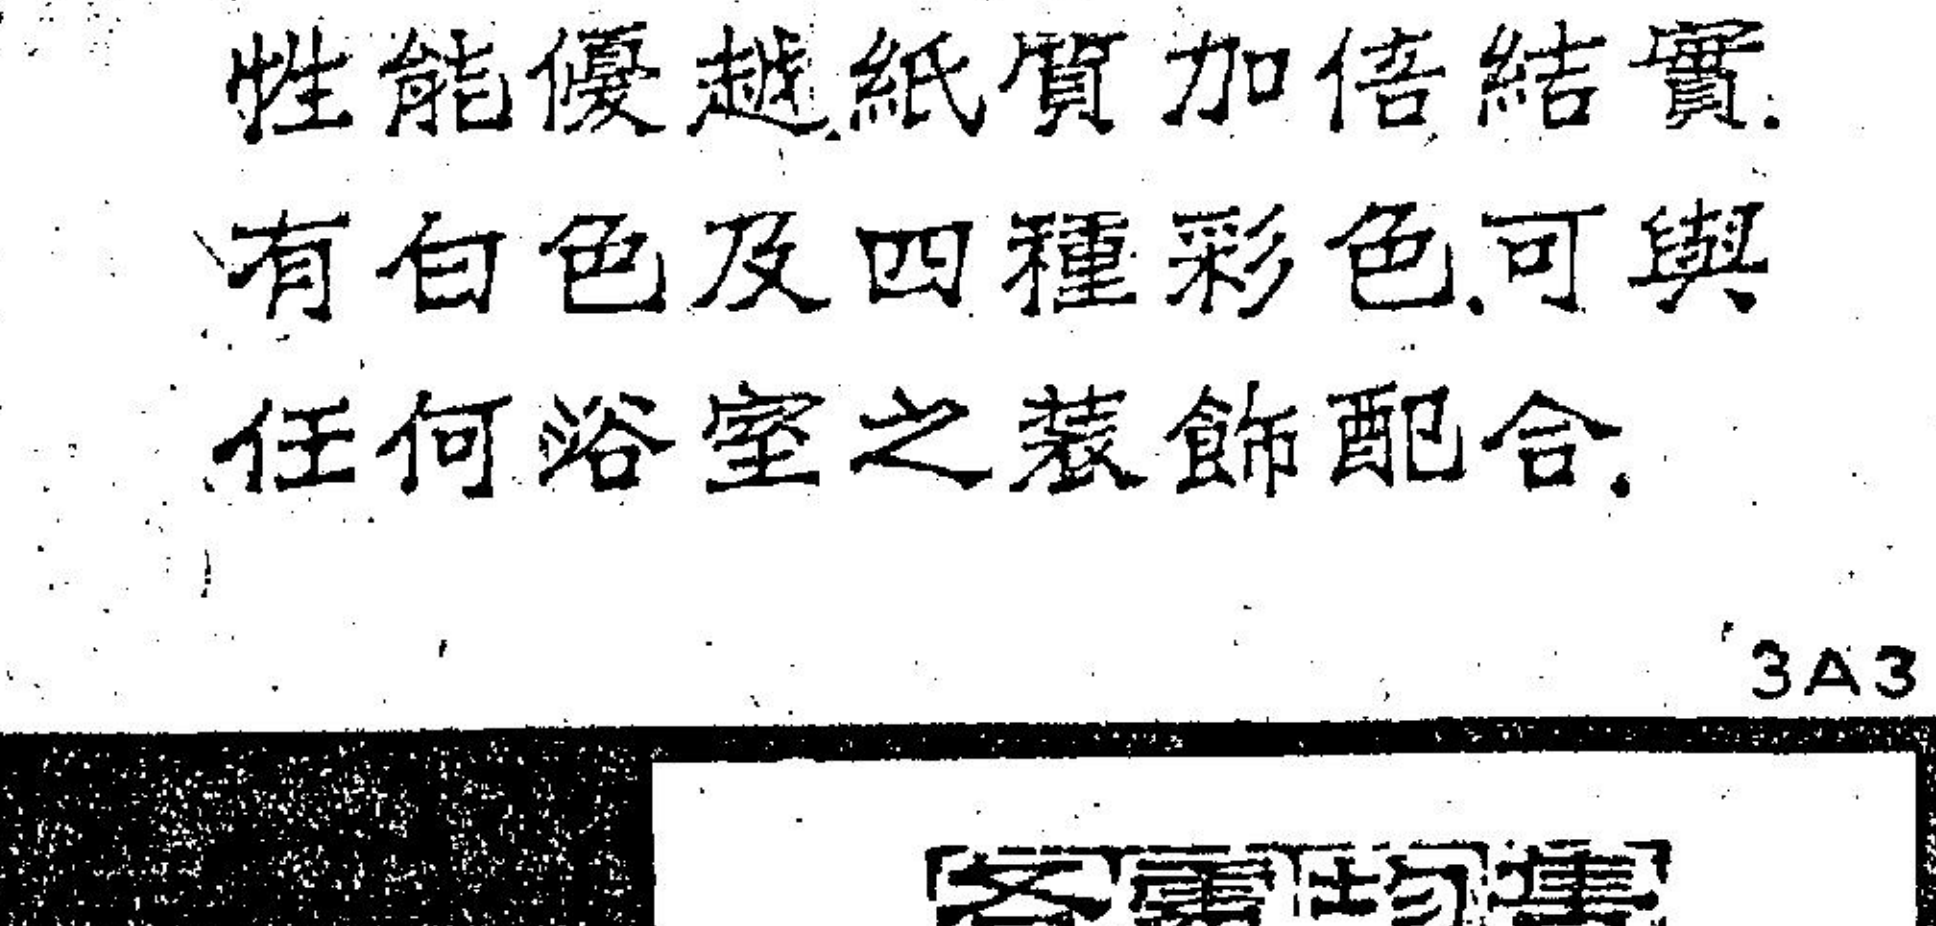 性能優越.紙質加倍結實.
有白色及四種彩色.可與
任何浴室之裝飾配合.
3A3